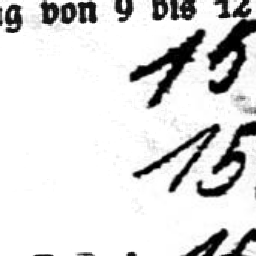 g von 9 bis 12
15
15